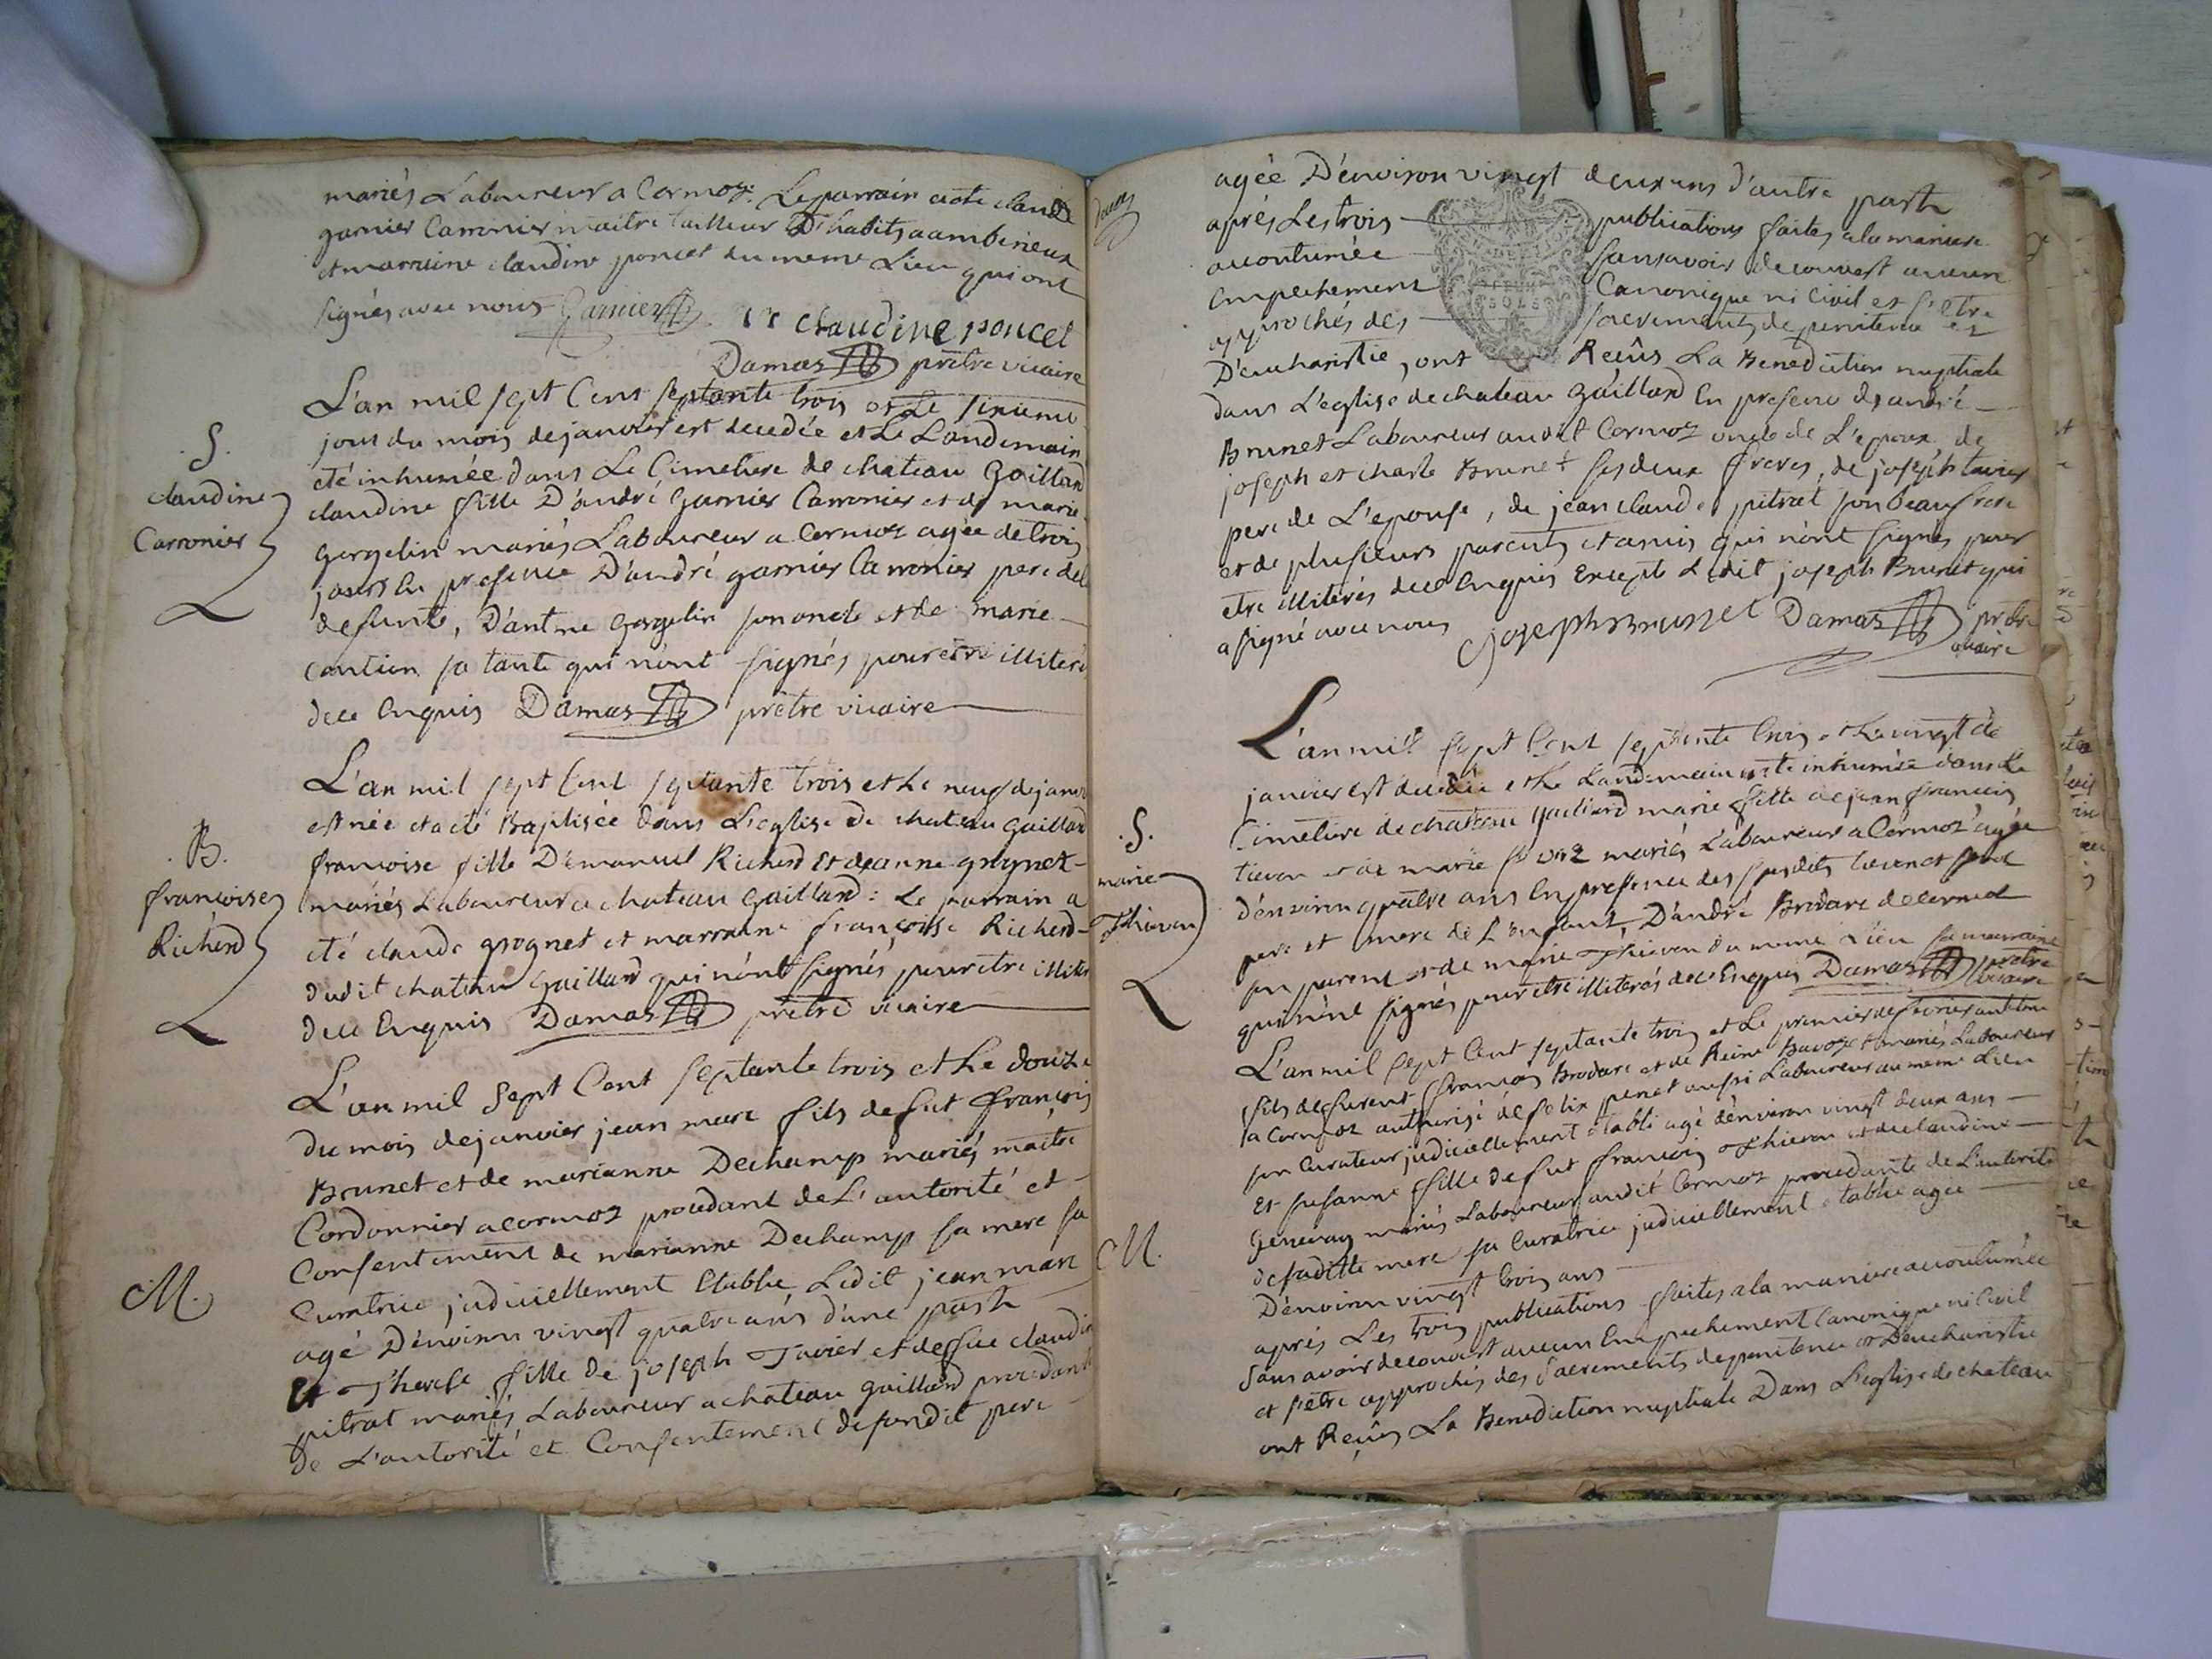 mariés Laboureur a Cormoz. Le parrain a été claude
garnier Carronier maitre tailleur D'habits a amberieux
et marraine claudine poncet du meme Lieu qui ont
signés avec nous Garnier claudine poncet
Damas prêtre vicaire
S.
claudine
Carronier
L'an mil sept Cent septante trois et Le sixieme
jour du mois de janvier est decedée et Le Landemain
été inhumée dans Le Cimetiere de chateau Gaillard
claudine fille D'andré Garnier Carronier et de marie
gorgelin mariés Laboureur a Cormoz agée de trois
jours En presence D'andré garnier Carronier pere de la
defunte, D'antme Gorgelin son oncle et de marie
cantien sa tante qui n'ont signés pour etre illiteré
de ce Enquis Damas prêtre vicaire
B.
françoise
Richerd
L'an mil sept Cent septante trois et Le neuf de janvr
est née et a été Baptisée Dans L'eglise de chateau gaillard
françoise fille D'emanuel Richerd et de anne grognet
mariés Laboureur a chateau Gaillard : Le parrain a
été claude grognet et marraine françoise Richerd
dudit chateau Gaillard qui n'ont signés pour etre illiter
de ce Enquis Damas prêtre vicaire
M.
L'an mil Sept Cent septante trois et Le douze
du mois de janvier jean marc fils de fut françois
Brunet et de marianne Dechamp mariés maitre
Cordonnier a cormoz procedant de L'autorité et
Consentement de marianne Dechamp sa mere sa
Curatrice judiciellement Etablie Ledit jean marc
agé D'environ vingt quatre ans d'une part
Et Therese fille de joseph Tavier et de fue claudin
pitrat mariés Laboureur a chateau gaillard procedant
de L'autorité et Consentement de sondit pere
agée D'environ vingt deux ans d'autre part
aprés Les trois publications faites a la maniere
accoutumée sans avoir decouvert aucun
Empechement Canonique ni Civil et s'etre
approchés des sacrements de penitence et
D'eucharistie, ont Reçûs La Benediction nuptiale
dans L'eglise de chateau gaillard En presence de andré
Brunet Laboureur audit Cormoz oncle de L'epoux de
joseph et charle Brunet ses deux freres, de joseph tavier
pere de L'epouse, de jean claude pitrat son beau frere
et de plusieurs parents et amis qui n'ont signés pour
etre illiterés de ce Enquis Excepté Ledit joseph Brunet qui
a signé avec nous joseph Brunet Damas prêtre
vicaire
S.
marie
Thievon
L'an mil sept Cent septante trois et Le vingt de
janvier est decedée et Le Landemain a été inhumée dans Le
Cimetiere de chateau gaillard marie fille de jean françois
tievon et de marie mariés Laboureur a Cormoz agée
d'environ quatre ans En presence des susdits
pere et mere de L'enfant, D'andré Brodare de cormoz
son parent et de marie Thievon du meme Lieu sa marraine
qui n'ont signés pour etre illiterés de ce Enquis Damas prêtre
vicaire
M.
L'an mil Sept Cent septante trois et Le premier de fevrier
fils de furent françois Brodare et de Reine mariés Laboureur
a Cormoz authorisé de felix penet aussi Laboureur au meme Lieu
son Curateur judiciellement établi agé d'environ vingt deux ans
Et susanne fille de fut françois Thievon et de claudine
Genevay mariés Laboureur audit Cormoz procedante de L'autorité
de saditte mere sa Curatrice judiciellement établie agée
D'environ vingt trois ans
aprés Les trois publications faites a la maniere accoutumée
Sans avoir decouvert aucun Empechement Canonique ni Civil
et s'etre approchés des Sacrements de penitence et D'eucharistie
ont Reçûs La Benediction nuptiale Dans L'eglise de chateau